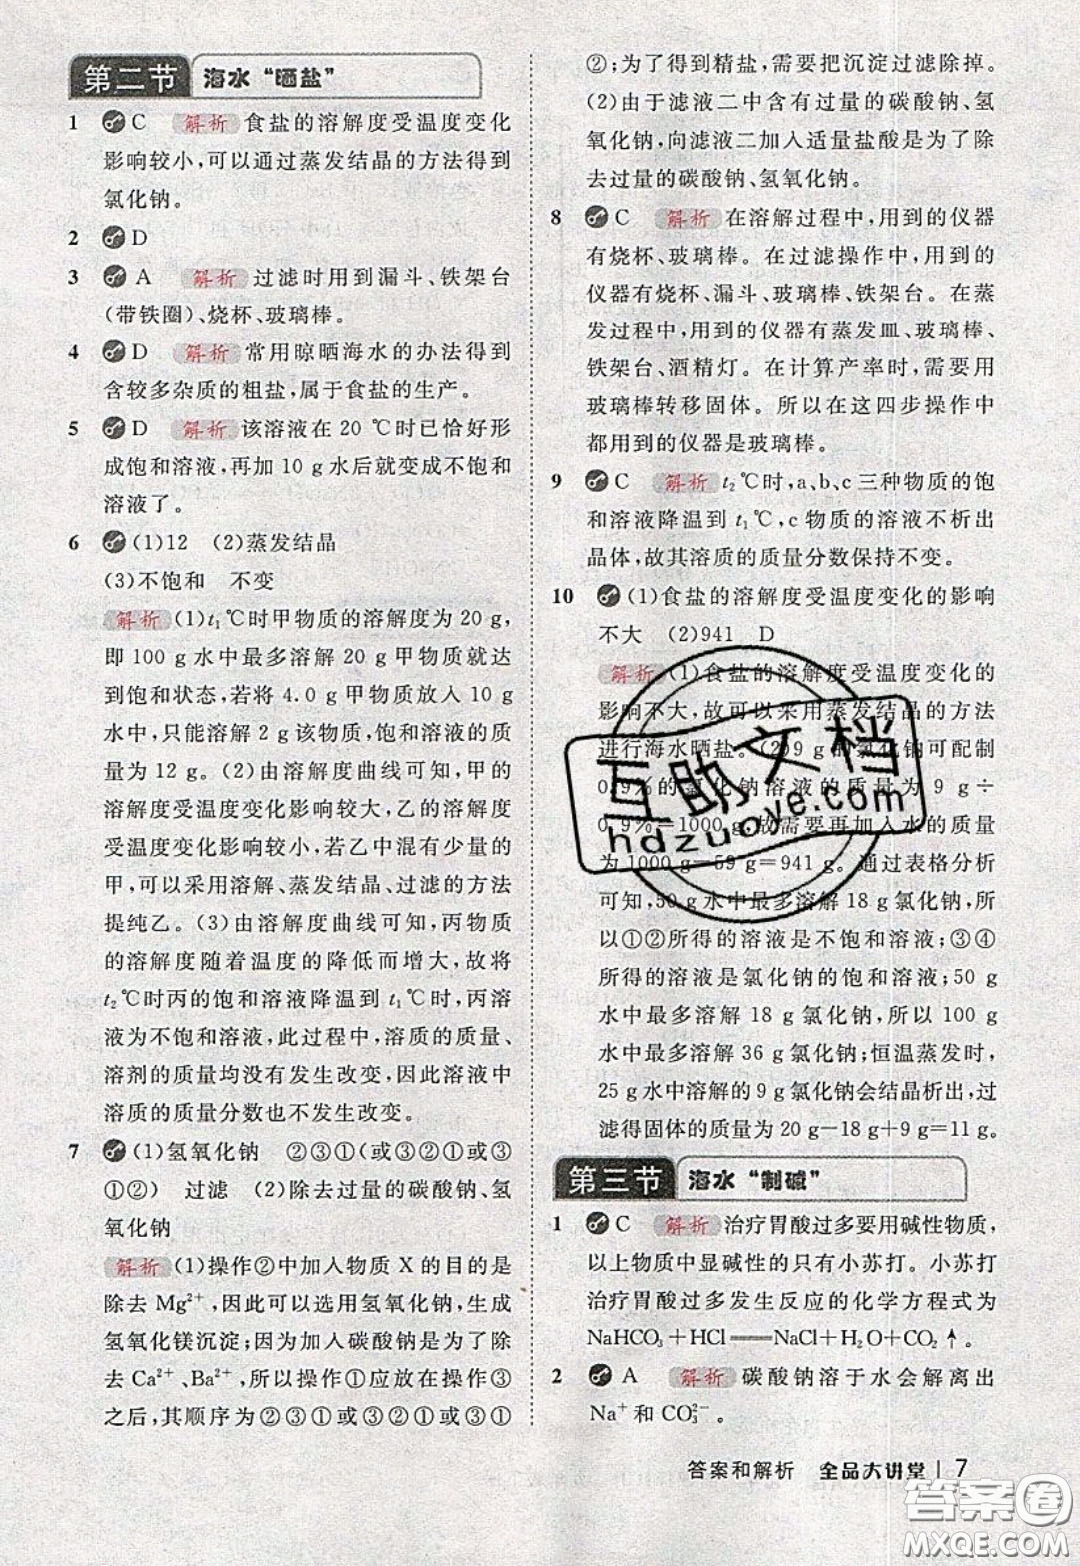 第二节 海水“晒盐”
1 C 解析 食盐的溶解度受温度变化
影响较小,可以通过蒸发结晶的方法得到
氯化钠。
2 D
3 A 解析 过滤时用到漏斗、铁架台
(带铁圈)、烧杯、玻璃棒。
4 D 解析 常用晾晒海水的办法得到
含较多杂质的粗盐,属于食盐的生产。
5 D 解析 该溶液在 20 ℃时已恰好形
成饱和溶液,再加 10 g 水后就变成不饱和
溶液了。
6 (1)12 (2)蒸发结晶
(3)不饱和 不变
解析 (1)t₁℃时甲物质的溶解度为 20 g,
即 100 g 水中最多溶解 20 g 甲物质就达
到饱和状态,若将 4.0 g 甲物质放入 10 g
水中,只能溶解 2 g 该物质,饱和溶液的质
量为 12 g。(2)由溶解度曲线可知,甲的
溶解度受温度变化影响较大,乙的溶解度
受温度变化影响较小,若乙中混有少量的
甲,可以采用溶解、蒸发结晶、过滤的方法
提纯乙。(3)由溶解度曲线可知,丙物质
的溶解度随着温度的降低而增大,故将
t₂℃时丙的饱和溶液降温到 t₁℃时,丙溶
液为不饱和溶液,此过程中,溶质的质量、
溶剂的质量均没有发生改变,因此溶液中
溶质的质量分数也不发生改变。
7 (1)氢氧化钠 ②③①(或③②①或③
①②) 过滤 (2)除去过量的碳酸钠、氢
氧化钠
解析 (1)操作②中加入物质 X 的目的是
除去 Mg²⁺,因此可以选用氢氧化钠,生成
氢氧化镁沉淀;因为加入碳酸钠是为了除
去 Ca²⁺、Ba²⁺,所以操作①应放在操作③
之后,其顺序为②③①或③②①或③①
②;为了得到精盐,需要把沉淀过滤除掉。
(2)由于滤液二中含有过量的碳酸钠、氢
氧化钠,向滤液二加入适量盐酸是为了除
去过量的碳酸钠、氢氧化钠。
8 C 解析 在溶解过程中,用到的仪器
有烧杯、玻璃棒。在过滤操作中,用到的
仪器有烧杯、漏斗、玻璃棒、铁架台。在蒸
发过程中,用到的仪器有蒸发皿、玻璃棒、
铁架台、酒精灯。在计算产率时,需要用
玻璃棒转移固体。所以在这四步操作中
都用到的仪器是玻璃棒。
9 C 解析 t₂℃时,a、b、c 三种物质的饱
和溶液降温到 t₁℃,c 物质的溶液不析出
晶体,故其溶质的质量分数保持不变。
10 (1)食盐的溶解度受温度变化的影响
不大 (2)941 D
解析 (1)食盐的溶解度受温度变化的
影响不大,故可以采用蒸发结晶的方法
进行海水晒盐。(2)9 g 的氯化钠可配制
0.9%的氯化钠溶液的质量为 9 g÷
0.9%=1000 g,故需要再加入水的质量
为 1000 g-59 g=941 g。通过表格分析
可知,50 g 水中最多溶解 18 g 氯化钠,所
以①②所得的溶液是不饱和溶液;③④
所得的溶液是氯化钠的饱和溶液;50 g
水中最多溶解 18 g 氯化钠,所以 100 g
水中最多溶解 36 g 氯化钠;恒温蒸发时,
25 g 水中溶解的 9 g 氯化钠会结晶析出,过
滤得固体的质量为 20 g-18 g+9 g=11 g。
第三节 海水“制碱”
1 C 解析 治疗胃酸过多要用碱性物质,
以上物质中显碱性的只有小苏打。小苏打
治疗胃酸过多发生反应的化学方程式为
NaHCO₃+HCl══NaCl+H₂O+CO₂↑。
2 A 解析 碳酸钠溶于水会解离出
Na⁺和 CO₃²⁻。
答案和解析 全品大讲堂 | 7
互助文档
hdzuoye.com
答案圈
MXQE.COM